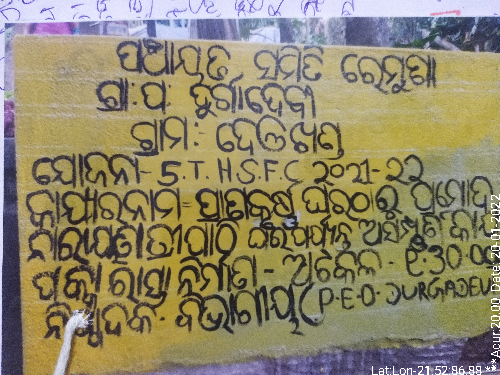 ପଞ୍ଚାୟତ ସମିତି ରେମୁଣା
ଗ୍ରା.ପ: ଦୁର୍ଗାଦେବୀ
ଗ୍ରାମ:- ଦେଉଖଣ୍ଡ
ଯୋଜନା- 5.T.H.S.F.C ୨୦୨୧-୨୨
କାର୍ଯ୍ୟରନାମ= ପ୍ରାଣକୃଷ୍ଣ ଘରଠାରୁ ପ୍ରମୋଦ
ନାରାୟଣ ତ୍ରୀପାଠି ଘରପର୍ଯ୍ୟନ୍ତ ଅସମ୍ପୂର୍ଣ୍ଣ
ପକ୍କା ରାସ୍ତା ନିର୍ମାଣ - ଅଟକଳ -
ନିଷ୍ପାଦକ- ବିଭାଗୀୟ (P.E.O- DURGADEVI
Lat Lon-21.52,86.99 ***Acur 20.00 Date 20-01-2022